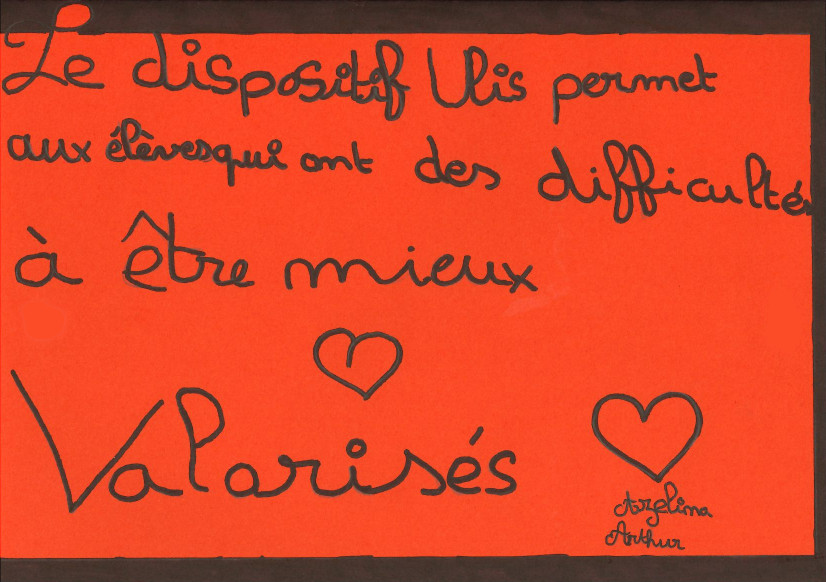 Le dispositif Ulis permet
aux élèves qui ont des difficultés
à être mieux
Valarisés
Azelima
Arthur